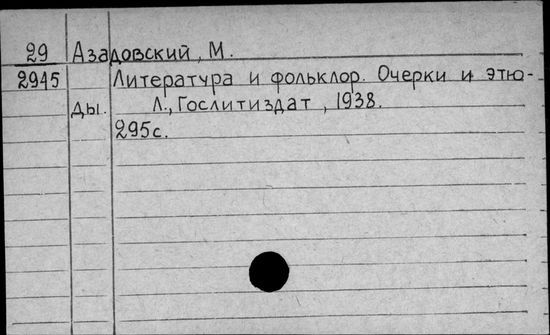 29 Азадовский, М.
2945 Литература и фольклор. Очерки и этю-
ды. Л., Гослитиздат, 1938.
295с.